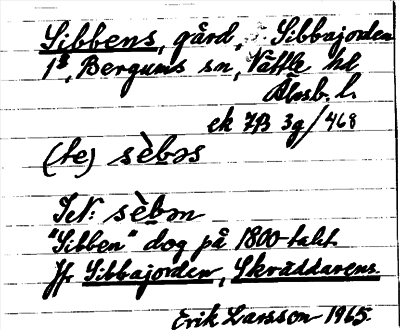 Sibbens, gård, Sibbajorden
1², Bergums sn, Vättle hd
Älvsb. l.
ek 7B 3g/468
(te) sè̀bəs
IN: sè̀bən
"Sibben" dog på 1800-talet
Jfr Sibbajorden, Skräddarens.
Erik Larsson 1965.